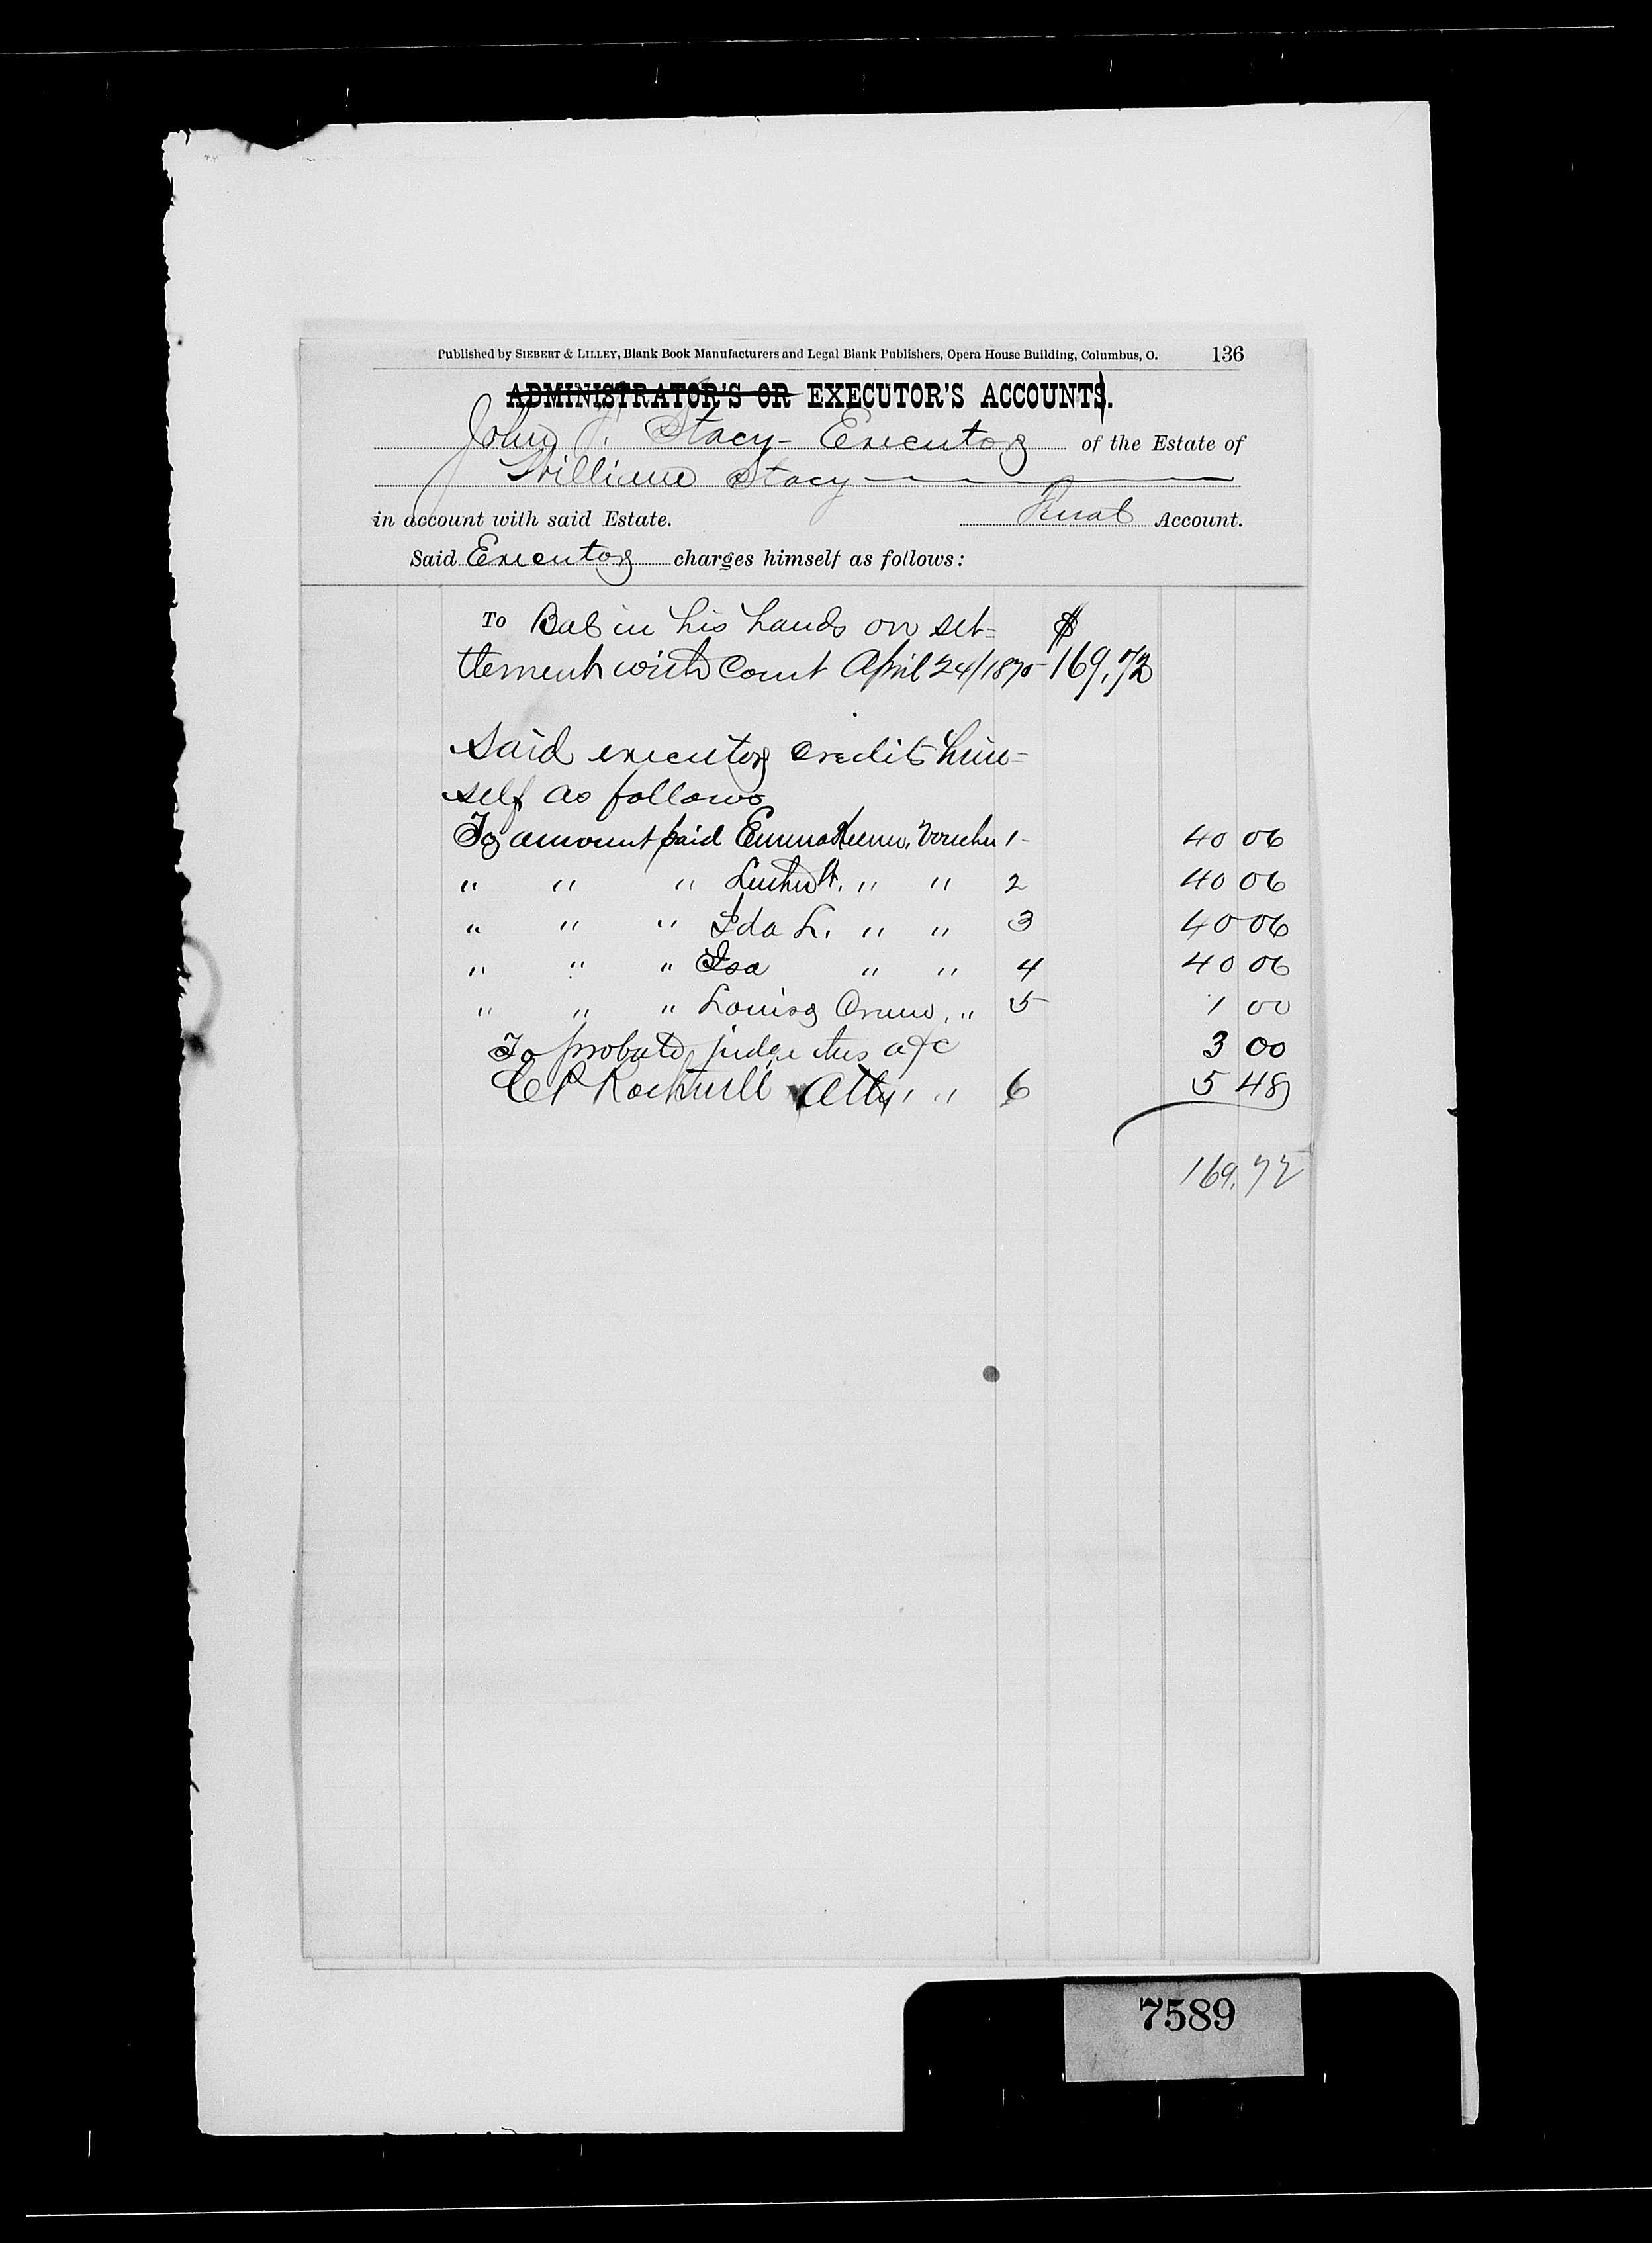 Published by SIEBERT & LILLEY, Blank Book Manufacturers and Legal Blank Publishers, Opera House Building, Columbus, O. 136
ADMINISTRATOR'S OR EXECUTOR'S ACCOUNTS.
John F. Stacy - Executor of the Estate of
William Stacy
in account with said Estate. Final Account.
Said Executor charges himself as follows:
To Bal in his hands on set= $
tlement with Court April 24/1875 169.72
Said executor credits him=
self as follows
To amount paid Emma Voucher 1 - 40 06
" " " Luther " " 2 40 06
" " " Ida L. " " 3 40 06
" " " Isa " " 4 40 06
" " " Louisa " 5 1 00
To probate judge this a/c 3 00
E P Rockwell Atty " " 6 5 48
169.72
7589